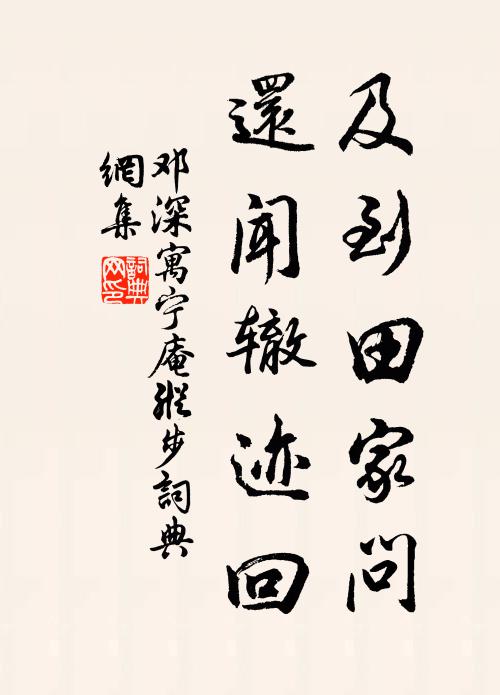 及到田家问
還闻辙迹回
邓深寓宁庵緃步詞典
網集
詞典
网印